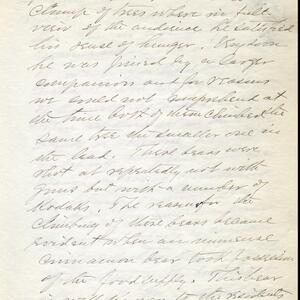 clump of trees where in full
view of the audience he satisfied
his sense of hunger.
he was joined by a larger
companion and for reasons
we could not comprehend at
the time both of them climbed the
same tree the smaller one in
the lead. These bears were
shot at repeatedly not with
guns but with a number of
Kodaks. The reason for the
climbing of these bears became
evident when an immense
cinnamon bear took possession
of the food supply. This bear
is well known to the residents